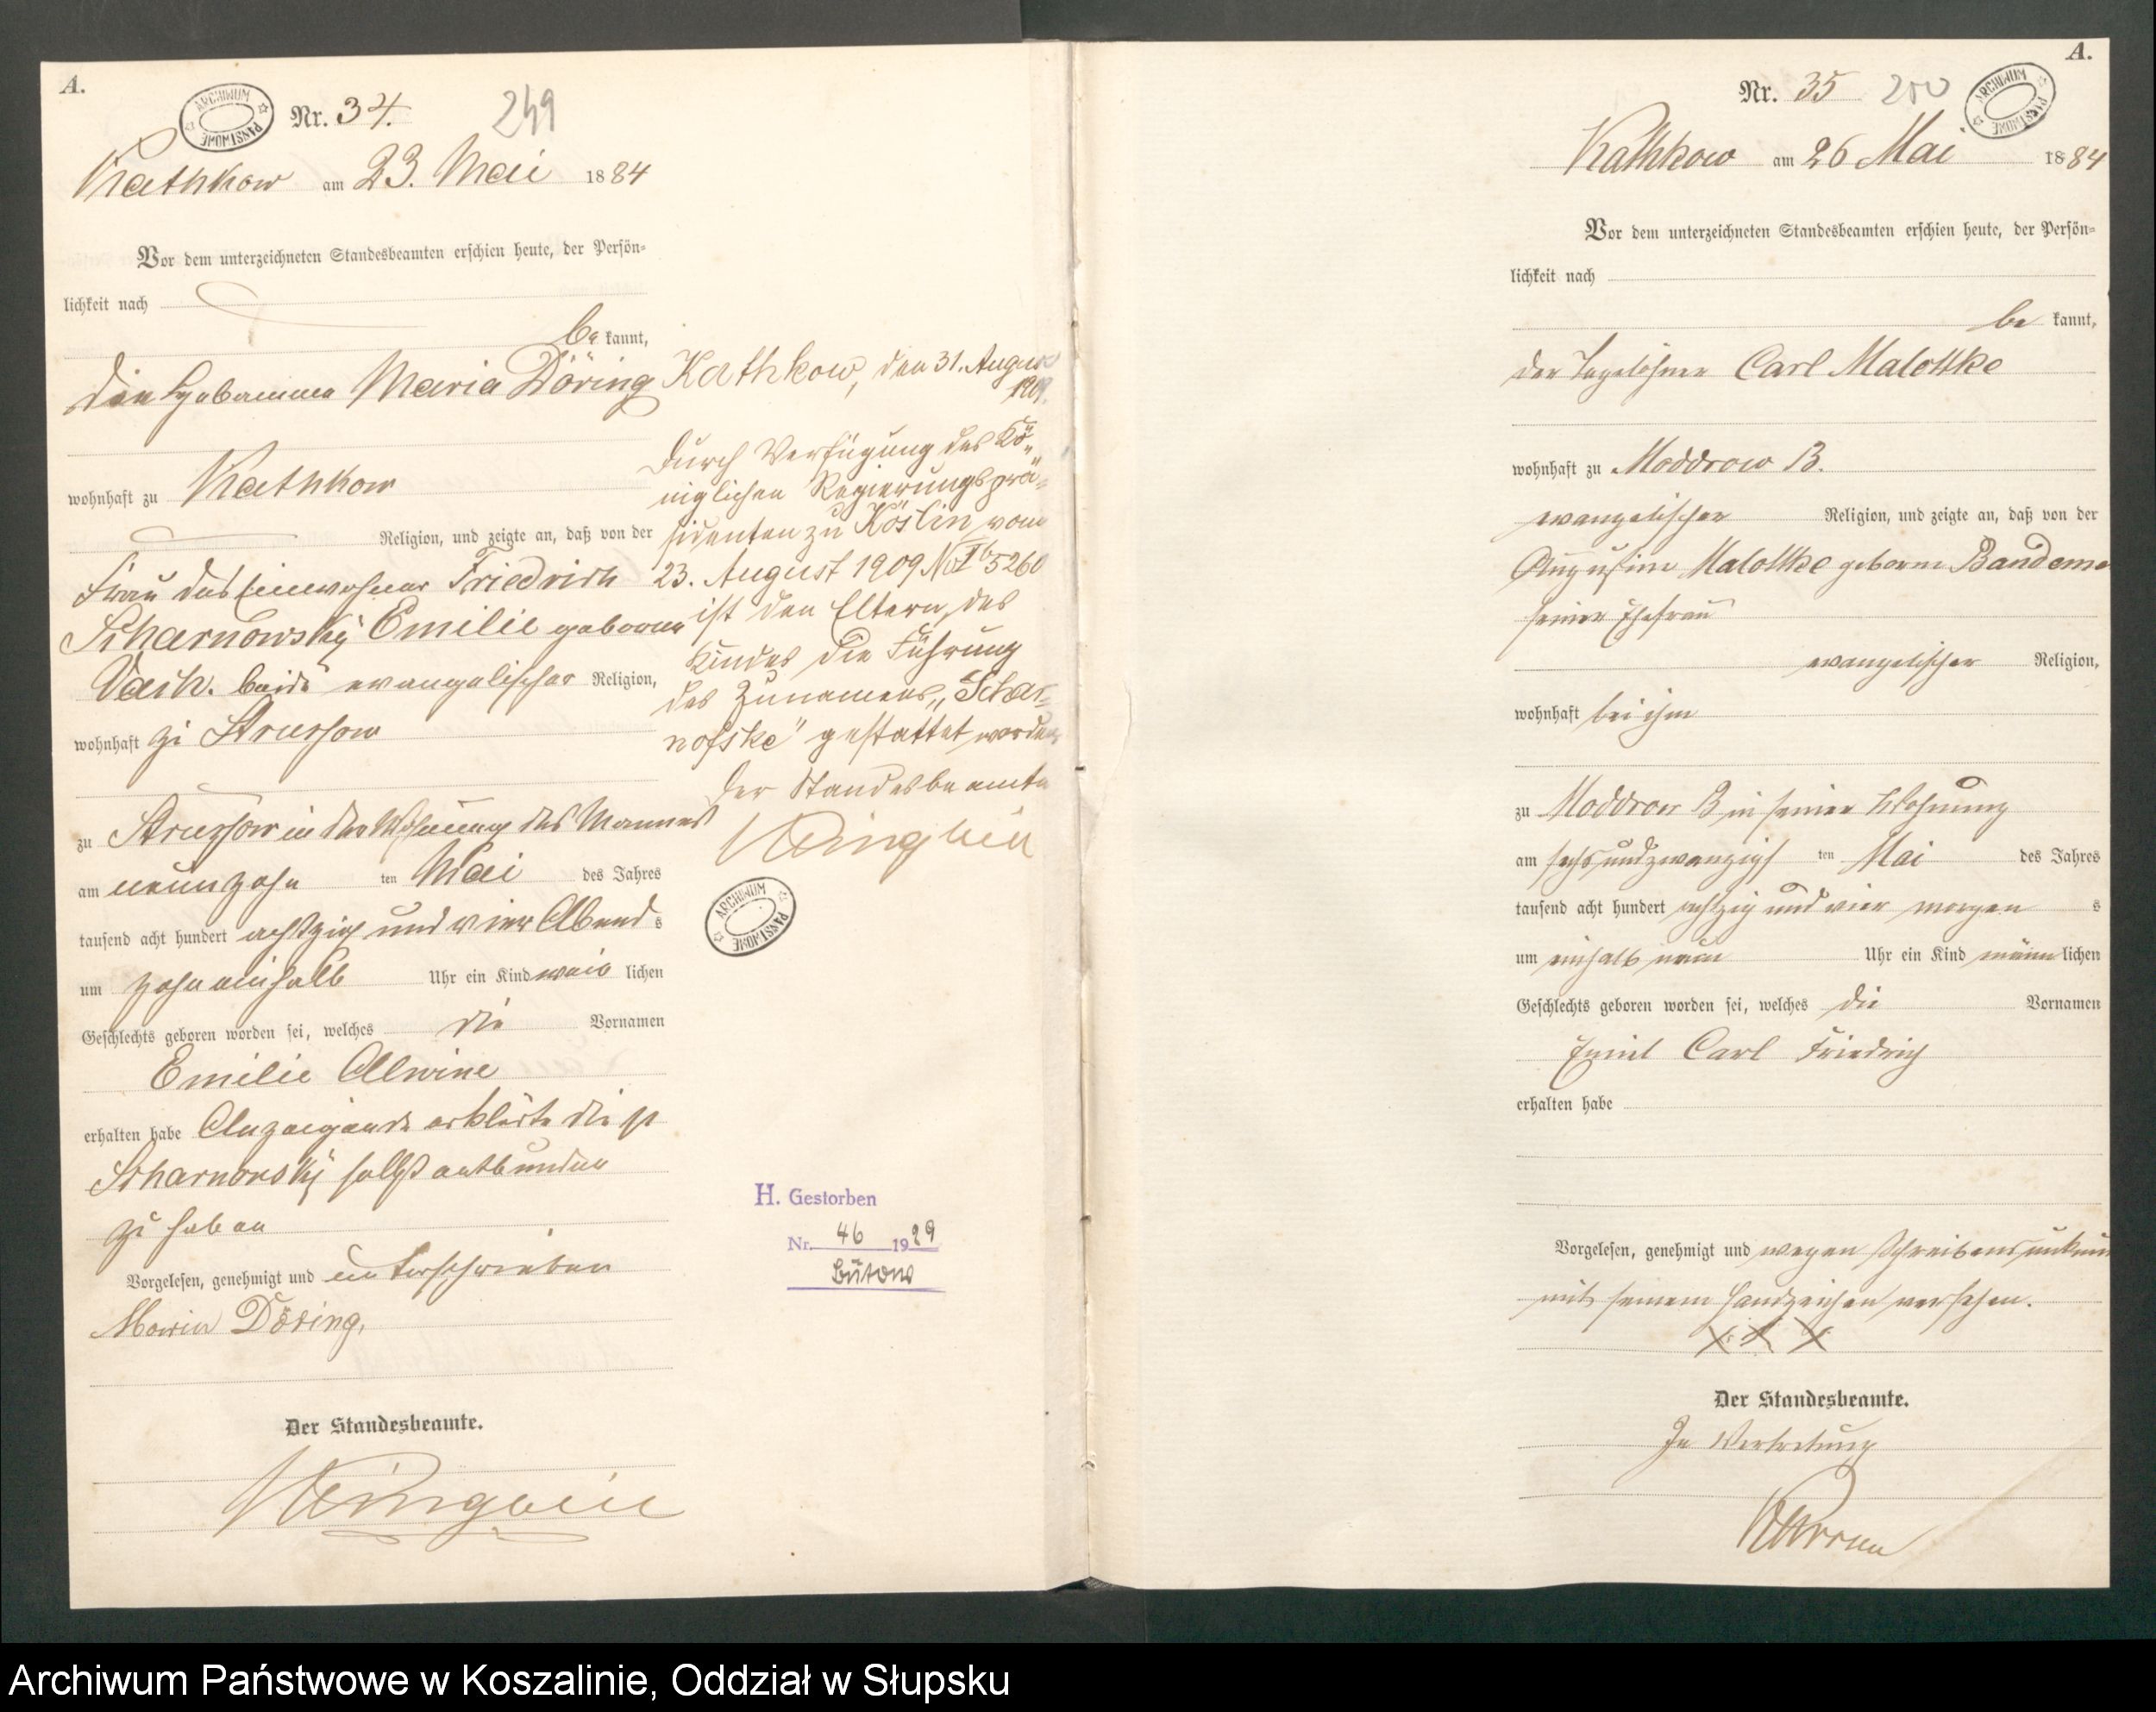 A.
ARCHIWUM PAŃSTWOWE
Nr. 34.
249
Kathkow am 23. Mai 1884
Vor dem unterzeichneten Standesbeamten erschien heute, der Persön-
lichkeit nach
be kannt,
die Hebamme Maria Döring
wohnhaft zu Kathkow
Religion, und zeigte an, daß von der
Frau des Einwohner Friedrich
Scharnowsky Emilie geborne
beide evangelischer Religion,
wohnhaft zu Strussow
zu Strussow in der Wohnung des Mannes
am neunzehn ten Mai des Jahres
tausend acht hundert achtzig und vier Abend s
um zehn einhalb Uhr ein Kind weib lichen
Geschlechts geboren worden sei, welches die Vornamen
Emilie Alwine
erhalten habe Anzeigende erklärte die p
Scharnowsky selbst entbunden
zu haben
Vorgelesen, genehmigt und unterschrieben
Maria Döring,
Der Standesbeamte.
Kathkow, den 31. August
1909.
Durch Verfügung des Kö-
niglichen Regierungsprä-
sidenten zu Köslin vom
23. August 1909 No I b 5260
ist den Eltern des
Kindes die Führung
des Zunamens „Schar-
nofske" gestattet worden
Der Standesbeamte
ARCHIWUM PAŃSTWOWE
H. Gestorben
Nr. 46 1929
Bütow
A.
Nr. 35
250
ARCHIWUM PAŃSTWOWE
Kathkow am 26 Mai 1884
Vor dem unterzeichneten Standesbeamten erschien heute, der Persön-
lichkeit nach
be kannt,
der Tagelöhner Carl Malottke
wohnhaft zu Moddrow B.
evangelischer Religion, und zeigte an, daß von der
Augustine Malottke geborne Bandeme
seiner Ehefrau
evangelischer Religion,
wohnhaft bei ihm
zu Moddrow B in seiner Wohnung
am sechsundzwanzigst ten Mai des Jahres
tausend acht hundert achtzig und vier morgen s
um einhalb neun Uhr ein Kind männ lichen
Geschlechts geboren worden sei, welches die Vornamen
Emil Carl Friedrich
erhalten habe
Vorgelesen, genehmigt und wegen Schreibensunkun
mit seinem Handzeichen versehen.
X X X
Der Standesbeamte.
In Vertretung
Archiwum Państwowe w Koszalinie, Oddział w Słupsku